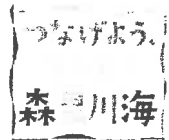 つなげよう、
森 川 海